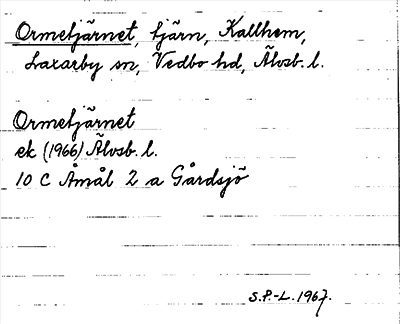 Ormetjärnet, tjärn, Kallhem,
Laxarby sn, Vedbo hd, Älvsb. l.
Ormetjärnet
ek (1966) Älvsb. l.
10 C Åmål 2 a Gårdsjö
S.P.-L. 1967.